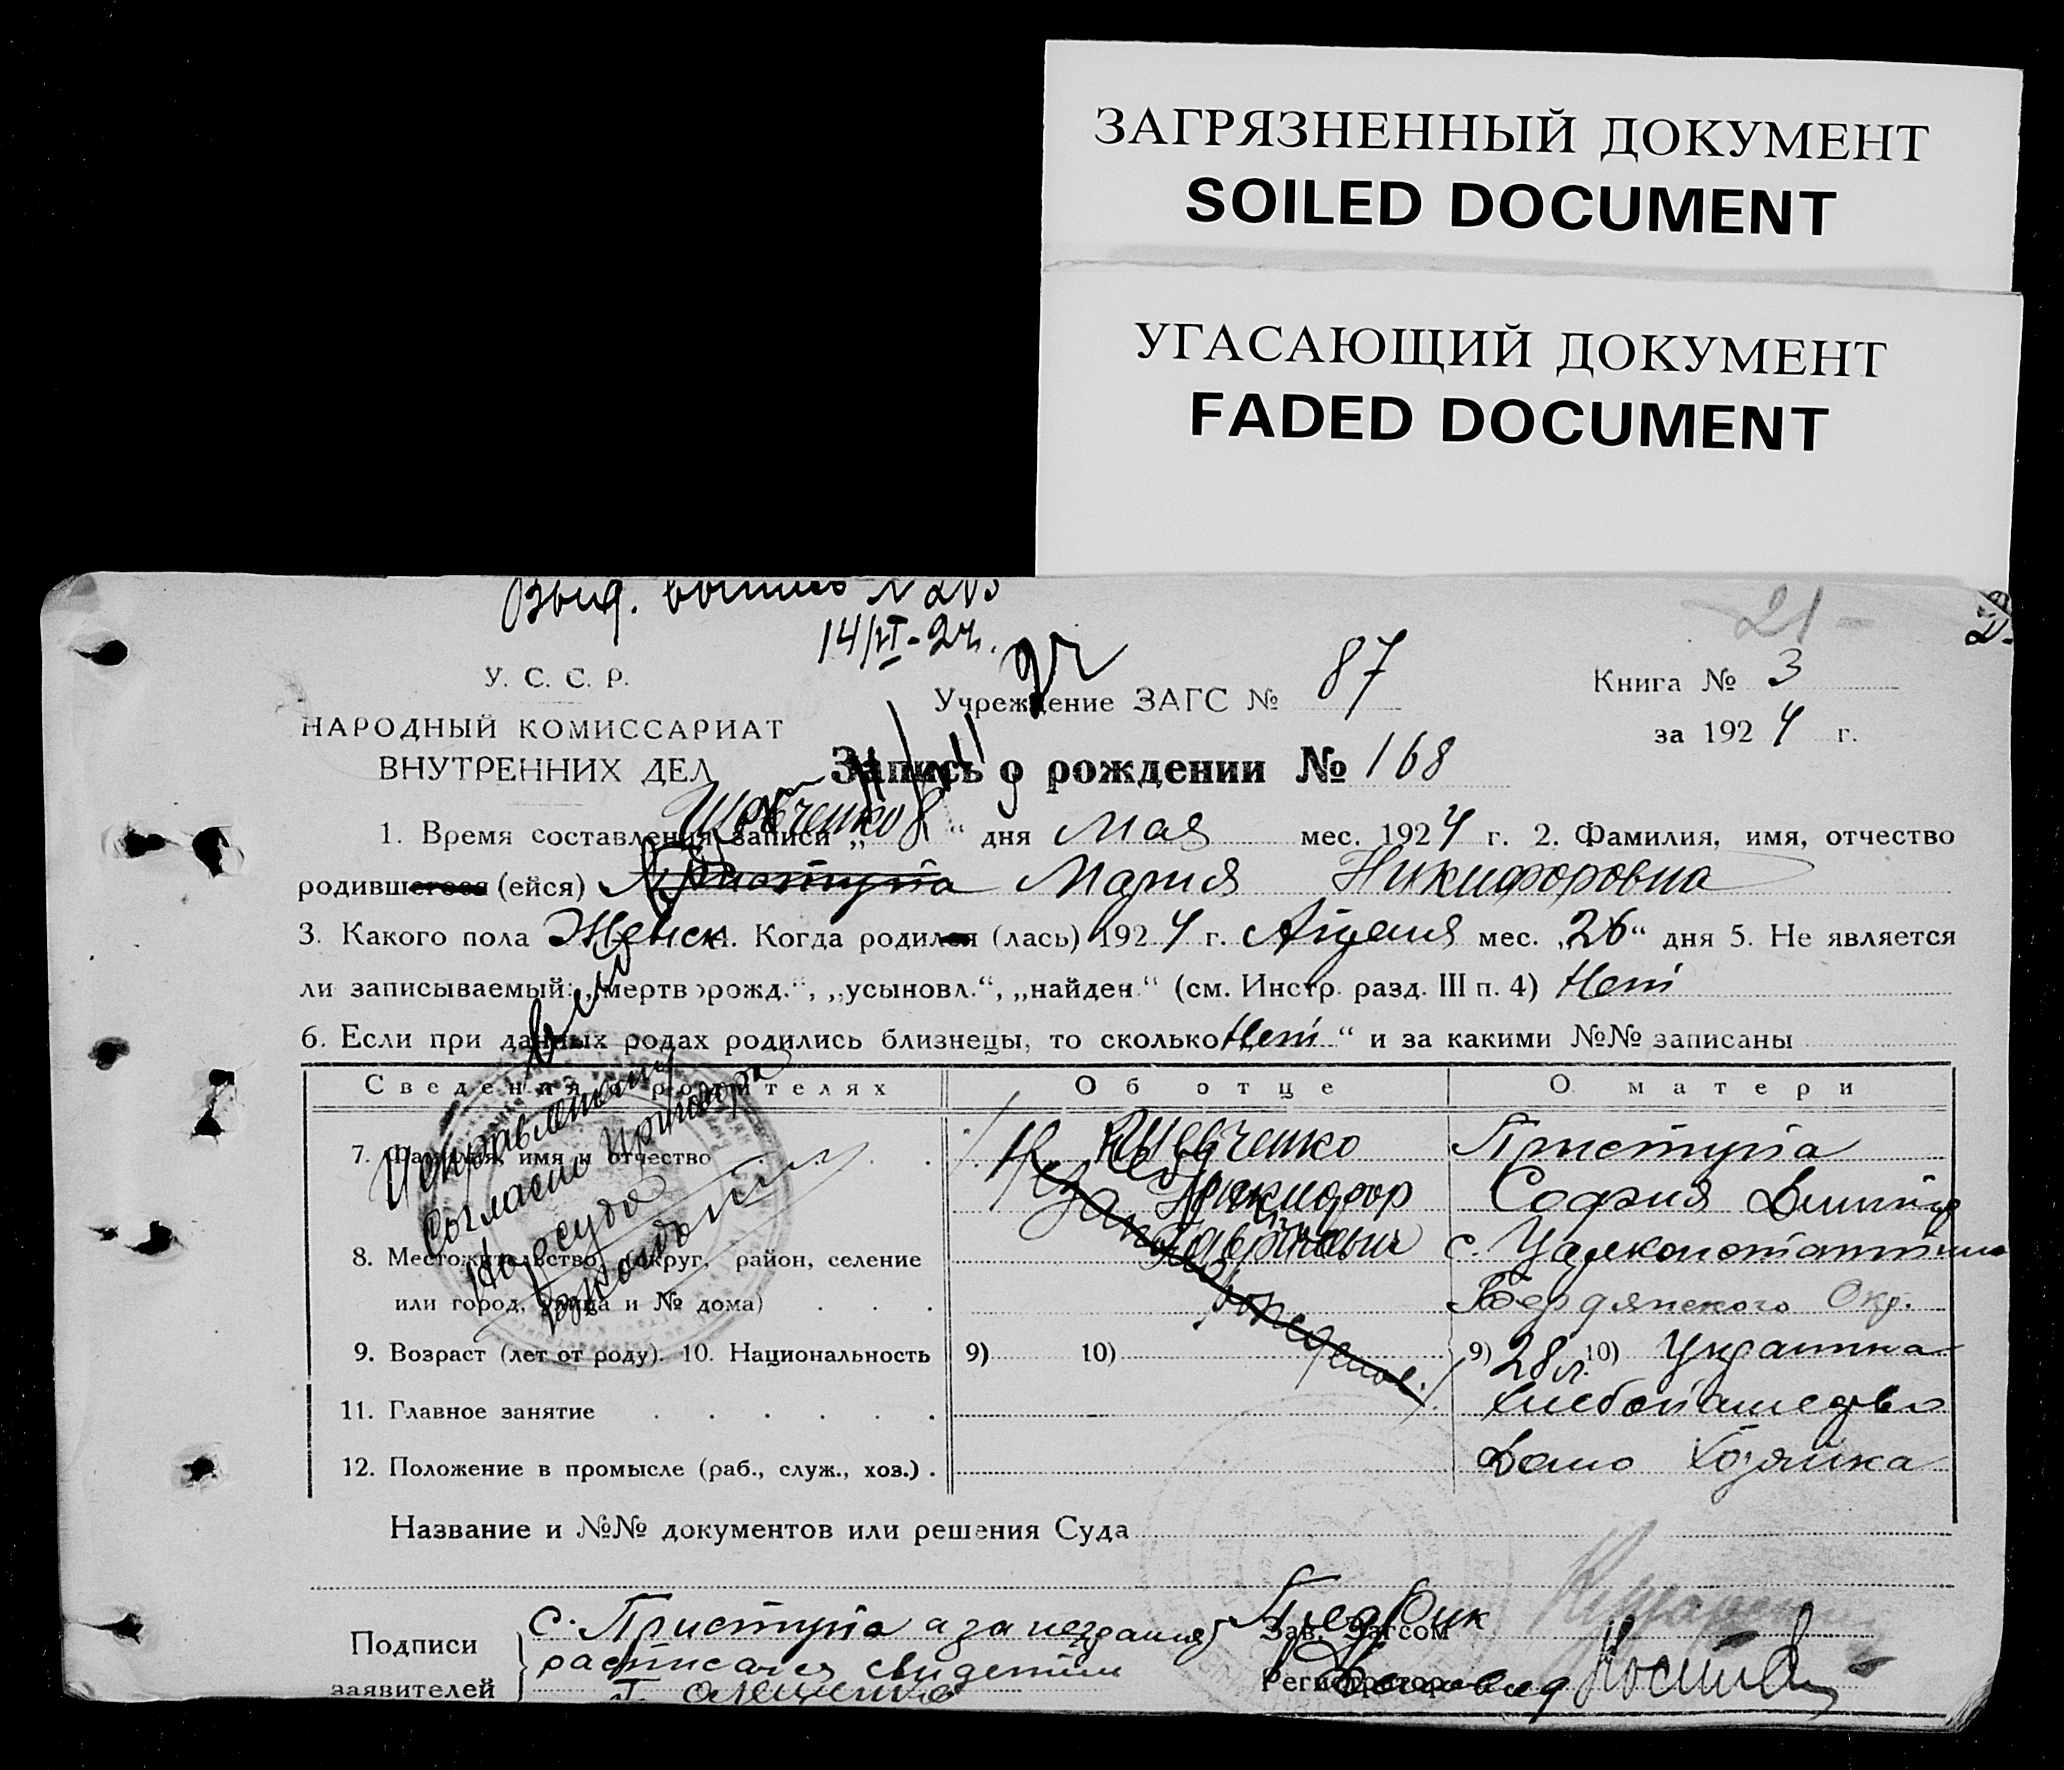 ЗАГРЯЗНЕННЫЙ ДОКУМЕНТ
SOILED DOCUMENT
УГАСАЮЩИЙ ДОКУМЕНТ
FADED DOCUMENT
21 -
14/VI-24.
У. С. С. Р.
НАРОДНЫЙ КОМИССАРИАТ
ВНУТРЕННИХ ДЕЛ
Учреждение ЗАГС № 87
Книга № 3
за 1924 г.
Запись о рождении № 168
Шевченко
1. Время составления записи „8“ дня Мая мес. 1924 г. 2. Фамилия, имя, отчество
родившегося (ейся) Приступа Мария Никифоровна
3. Какого пола Женск 4. Когда родился (лась) 1924 г. Апреля мес. „26“ дня 5. Не является
ли записываемый: „мертворожд.“, „усыновл.“, „найден.“ (см. Инстр. разд. III п. 4) Нет
6. Если при данных родах родились близнецы, то сколько „Нет“ и за какими №№ записаны
Сведения о родителях
Об отце
О матери
Исправленному
согласно приговора
Нар суда
7. Фамилия, имя и отчество
Шевченко
Никифор
Приступа
София
8. Местожительство (округ, район, селение
или город, улица и № дома)
с. Цареконстантин
Бердянского Окр.
9. Возраст (лет от роду). 10. Национальность
9) 10)
9) 28 л. 10) Украинка
11. Главное занятие
хлебопашество
12. Положение в промысле (раб., служ., хоз.)
Домо Хозяйка
Название и №№ документов или решения Суда
Подписи
заявителей
С. Приступа а за неграмот
расписался свидетель
Зав. Загсом
Регистратор